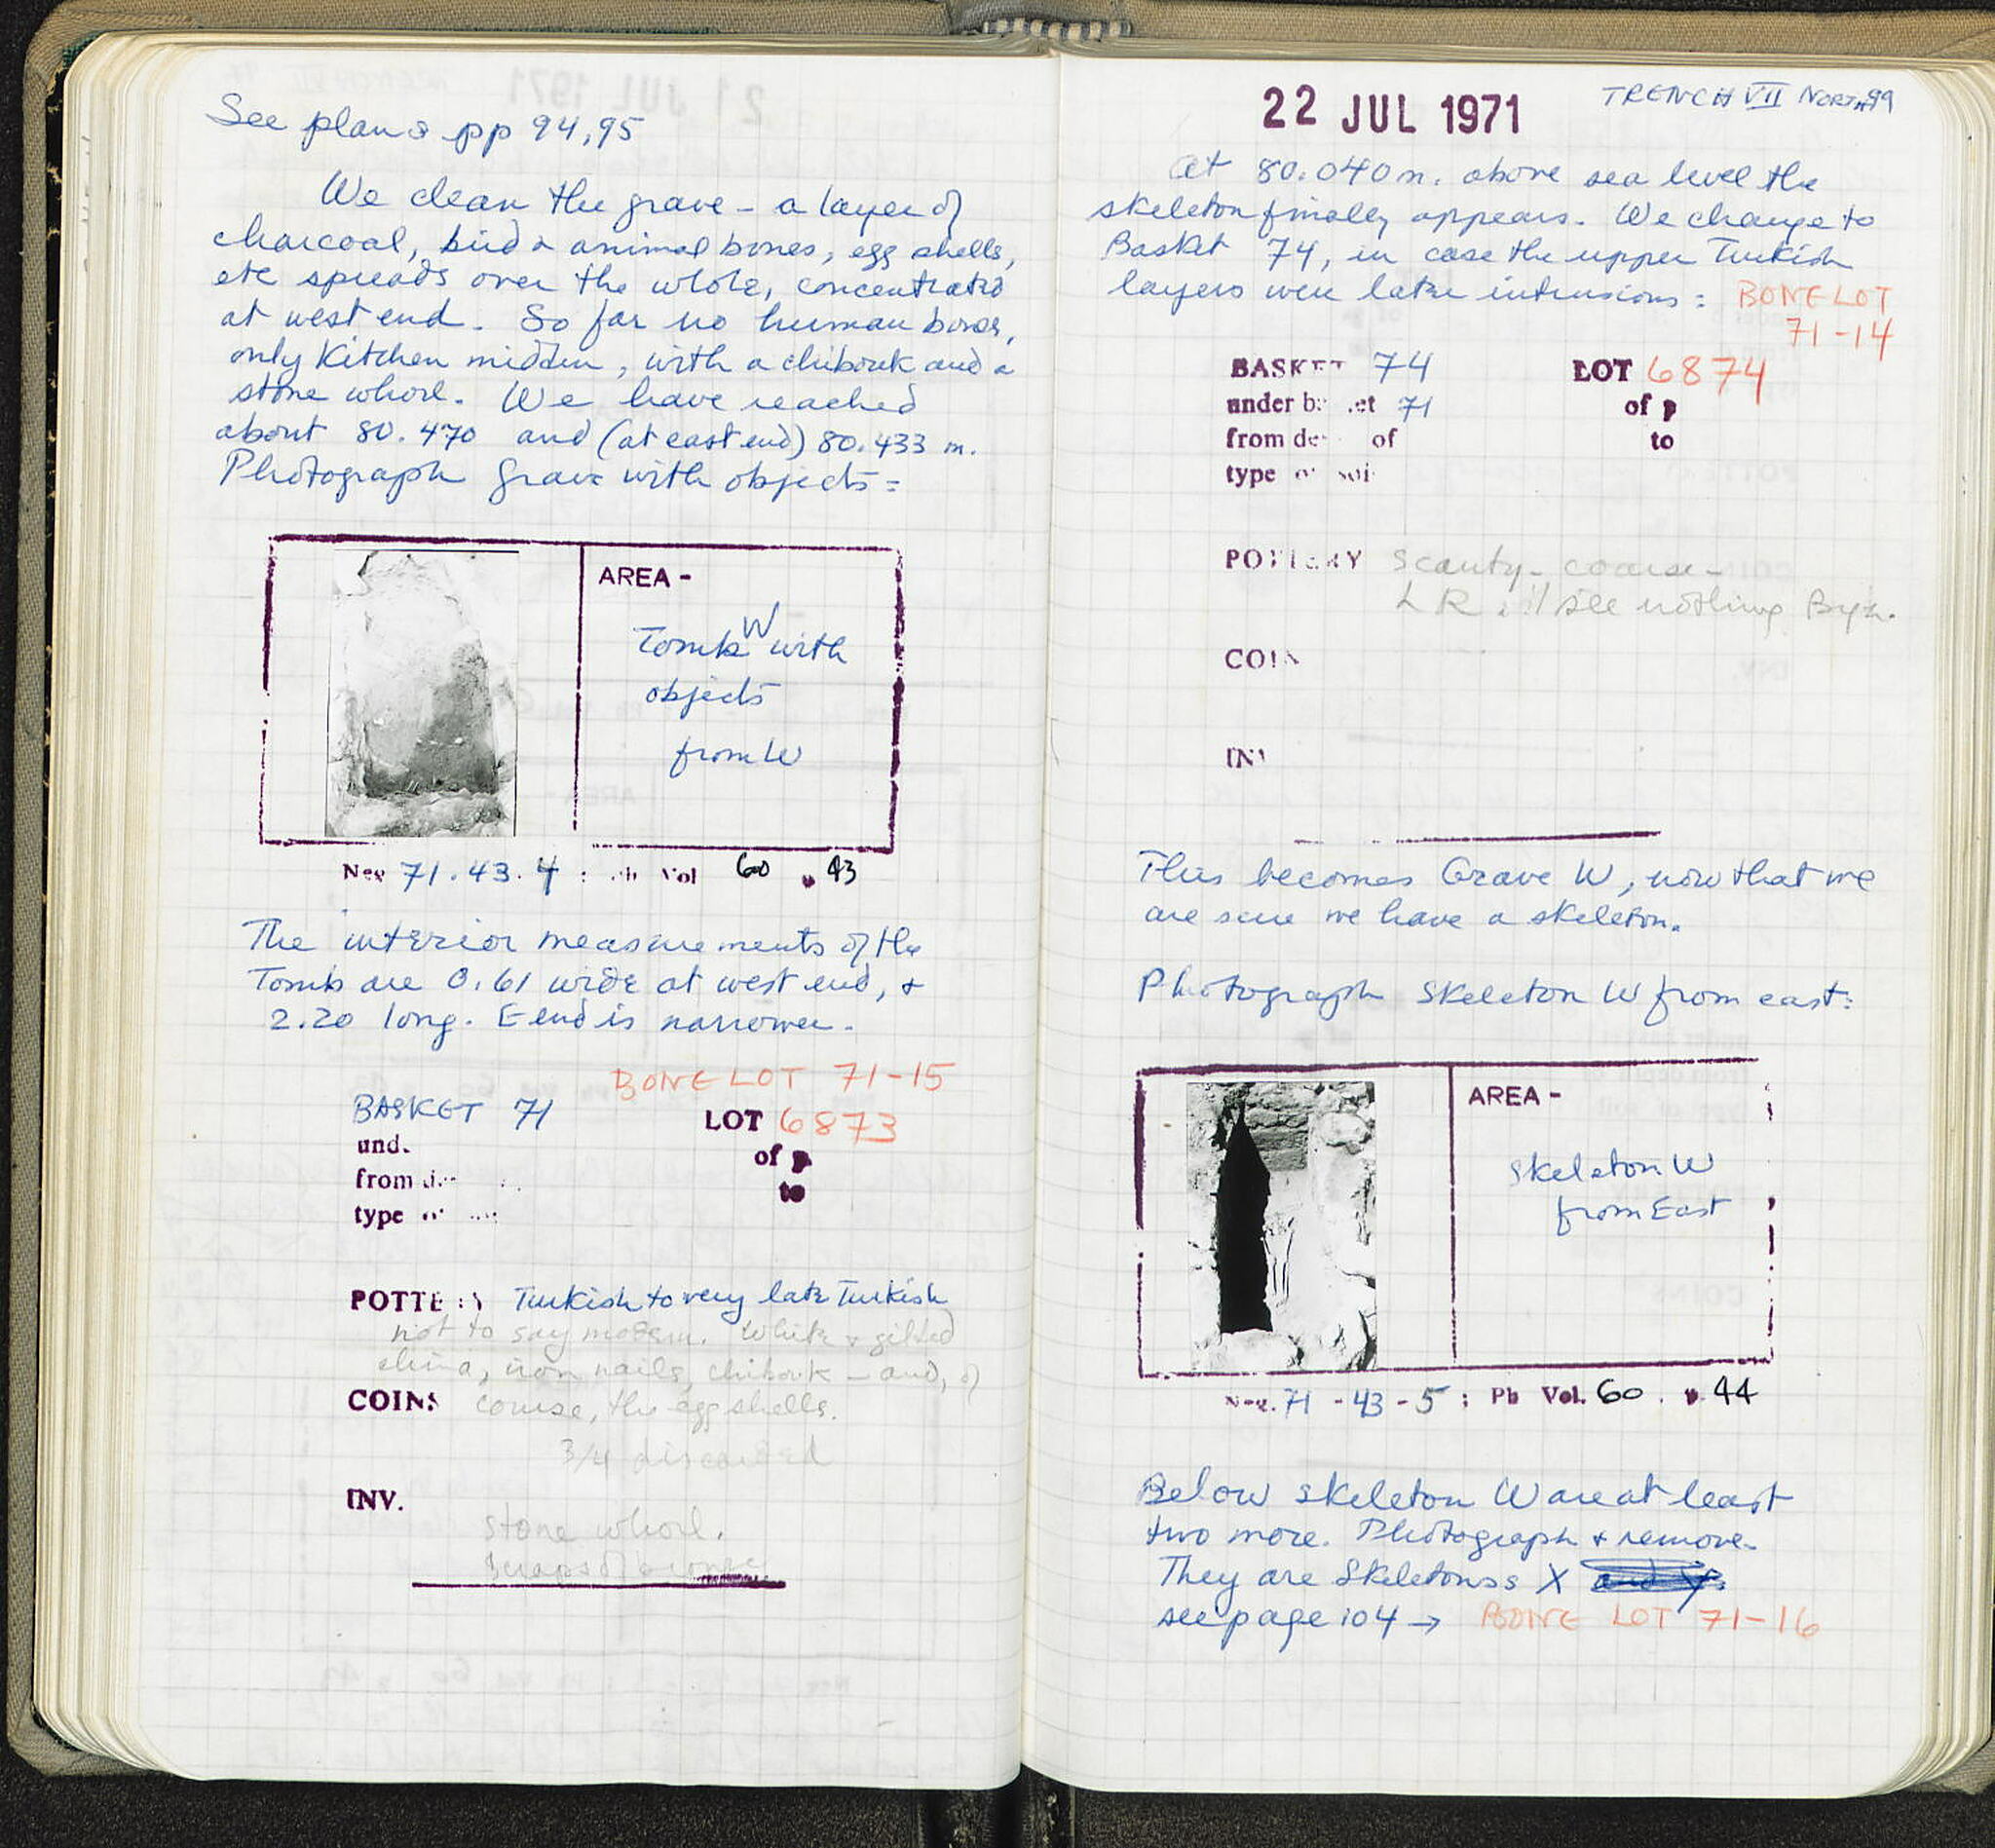 See plans pp 94,95
We clean the grave - a layer of
charcoal, bird & animal bones, egg shells,
etc spreads over the whole, concentrated
at west end. So far no human bones,
only Kitchen midden, with a chibouk and a
stone whorl. We have reached
about 80.470 and (at east end) 80.433 m.
Photograph grave with objects =
AREA -
Tomb W with
objects
from W
Neg 71.43.4 : Ph Vol 60 p 43
The interior measurements of the
Tomb are 0.61 wide at west end, &
2.20 long. E end is narrower.
BONE LOT 71-15
BASKET 71 LOT 6873
und. of p
from de to
type of
POTTERY Turkish to very late Turkish
not to say modern. White & gilded
china, iron nails, chibouk - and, of
COINS course, the egg shells.
3/4 discarded
INV.
stone whorl.
scraps of bronze
22 JUL 1971
TRENCH VII NORTH 99
At 80.040 m. above sea level the
skeleton finally appears. We change to
Basket 74, in case the upper Turkish
layers were later intrusions: BONE LOT
71-14
BASKET 74 LOT 6874
under basket 71 of p
from de of to
type of soi
POTTERY Scanty - coarse -
LR. I see nothing Byz.
COIN
INV
This becomes Grave W, now that we
are sure we have a skeleton.
Photograph Skeleton W from east:
AREA -
Skeleton W
from East
Neg. 71 - 43 - 5 ; Ph Vol. 60 . p. 44
Below skeleton W are at least
two more. Photograph & remove.
They are Skeletonss X and Y.
see page 104 → BONE LOT 71-16